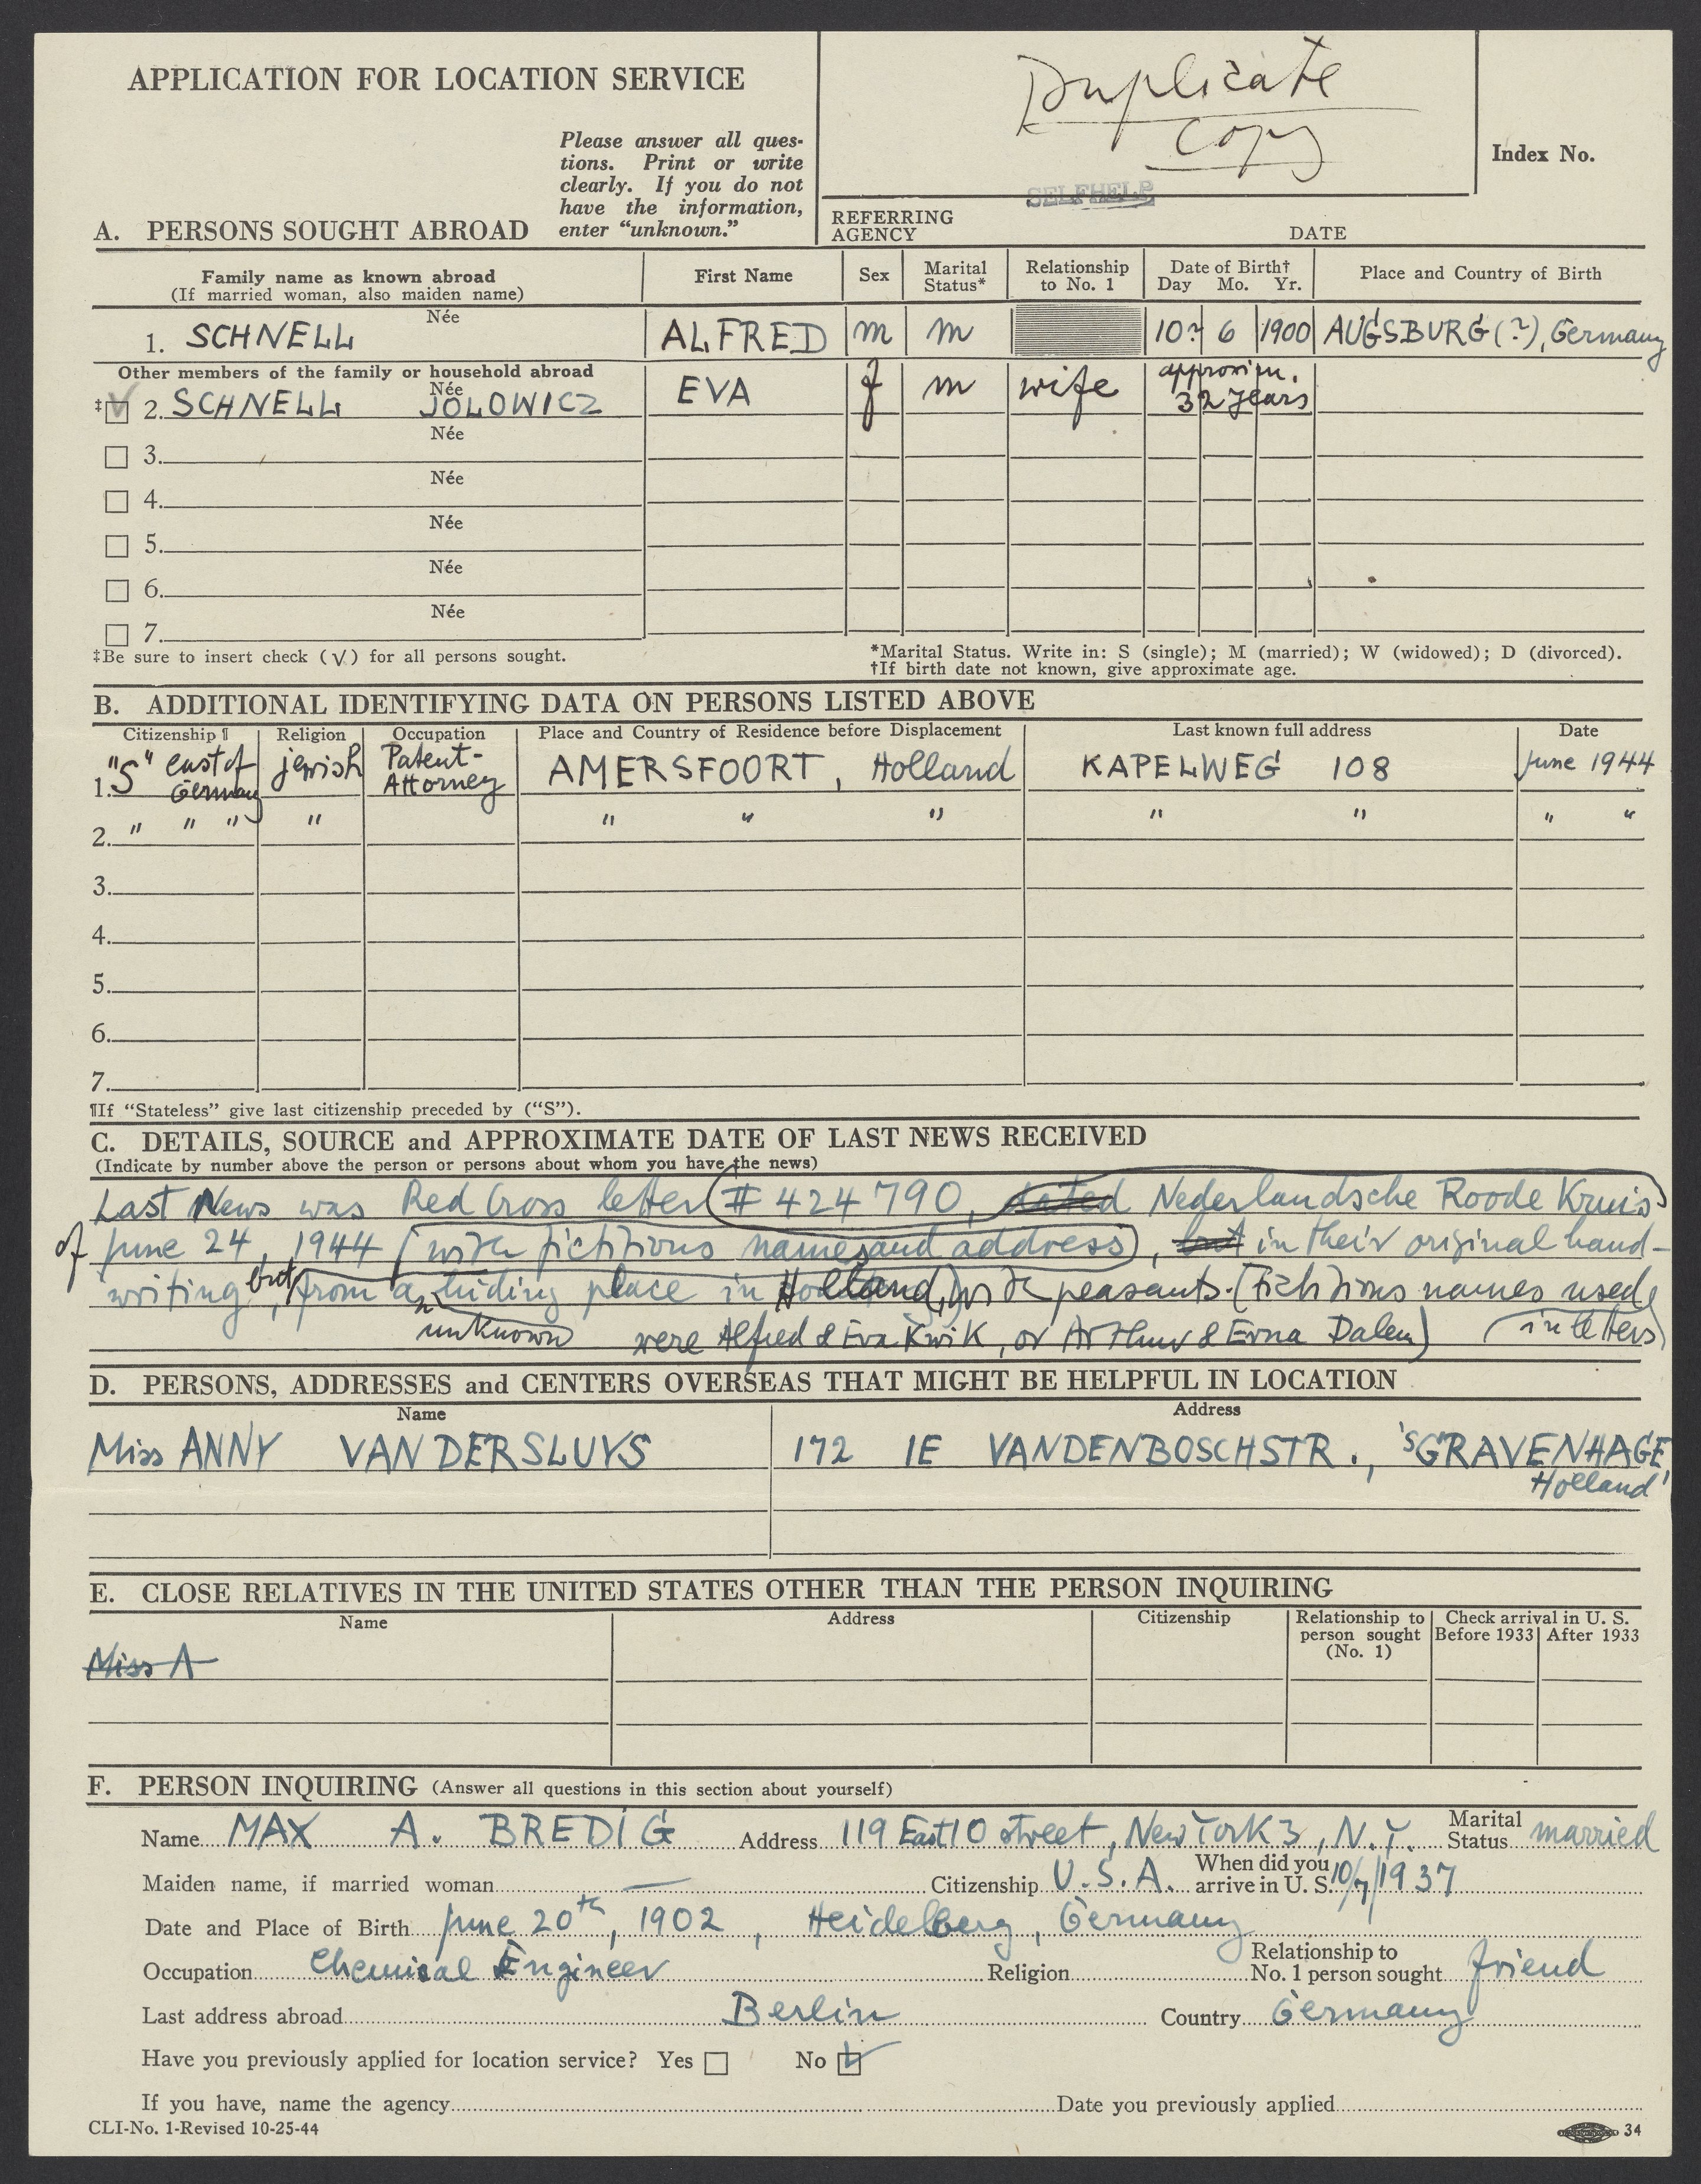 APPLICATION FOR LOCATION SERVICE
Please answer all ques-
tions. Print or write
clearly. If you do not
have the information,
enter “unknown.”
Duplicate
Copy
SELFHELP
REFERRING
AGENCY
DATE
Index No.
A. PERSONS SOUGHT ABROAD
Family name as known abroad
(If married woman, also maiden name)
First Name
Sex
Marital
Status*
Relationship
to No. 1
Date of Birth†
Day Mo. Yr.
Place and Country of Birth
Née
1. SCHNELL ALFRED m m 10? 6 1900 AUGSBURG (?), Germany
Other members of the family or household abroad
Née
‡ 2. SCHNELL JOLOWICZ EVA f m wife approxim. 32 years
Née
3.
Née
4.
Née
5.
Née
6.
Née
7.
‡Be sure to insert check (√) for all persons sought.
*Marital Status. Write in: S (single); M (married); W (widowed); D (divorced).
†If birth date not known, give approximate age.
B. ADDITIONAL IDENTIFYING DATA ON PERSONS LISTED ABOVE
Citizenship ¶ Religion Occupation Place and Country of Residence before Displacement Last known full address Date
1. "S" east of Germany jewish Patent-Attorney AMERSFOORT, Holland KAPELWEG 108 June 1944
2. " " " " " " " " " " "
3.
4.
5.
6.
7.
¶If “Stateless” give last citizenship preceded by (“S”).
C. DETAILS, SOURCE and APPROXIMATE DATE OF LAST NEWS RECEIVED
(Indicate by number above the person or persons about whom you have the news)
Last News was Red Cross letter (# 424790, dated Nederlandsche Roode Kruis)
of June 24, 1944 (with fictitious names and address), but in their original hand-
writing, but from a hiding place in Holland, with peasants. (Fictitious names used
unknown were Alfred & Eva Kwik, or Arthur & Erna Dalem) (in letters)
D. PERSONS, ADDRESSES and CENTERS OVERSEAS THAT MIGHT BE HELPFUL IN LOCATION
Name Address
Miss ANNY VAN DERSLUYS 172 IE VANDENBOSCHSTR., 'SGRAVENHAGE,
Holland
E. CLOSE RELATIVES IN THE UNITED STATES OTHER THAN THE PERSON INQUIRING
Name
Address
Citizenship
Relationship to
person sought
(No. 1)
Check arrival in U. S.
Before 1933 After 1933
Miss A
F. PERSON INQUIRING (Answer all questions in this section about yourself)
Name MAX A. BREDIG Address 119 East 10 street, New York 3, N.Y. Marital Status married
Maiden name, if married woman — Citizenship U.S.A. When did you arrive in U. S. 10/7/1937
Date and Place of Birth June 20th, 1902, Heidelberg, Germany
Occupation Chemical Engineer Religion Relationship to No. 1 person sought friend
Last address abroad Berlin Country Germany
Have you previously applied for location service? Yes No
If you have, name the agency Date you previously applied
CLI-No. 1-Revised 10-25-44
34